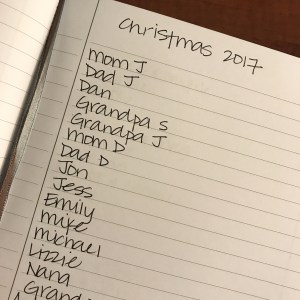 Christmas 2017
mom J
Dad J
Dan
Grandpa S
Grandpa J
mom D
Dad D
Jon
Jess
Emily
mike
michael
Lizzie
Nana